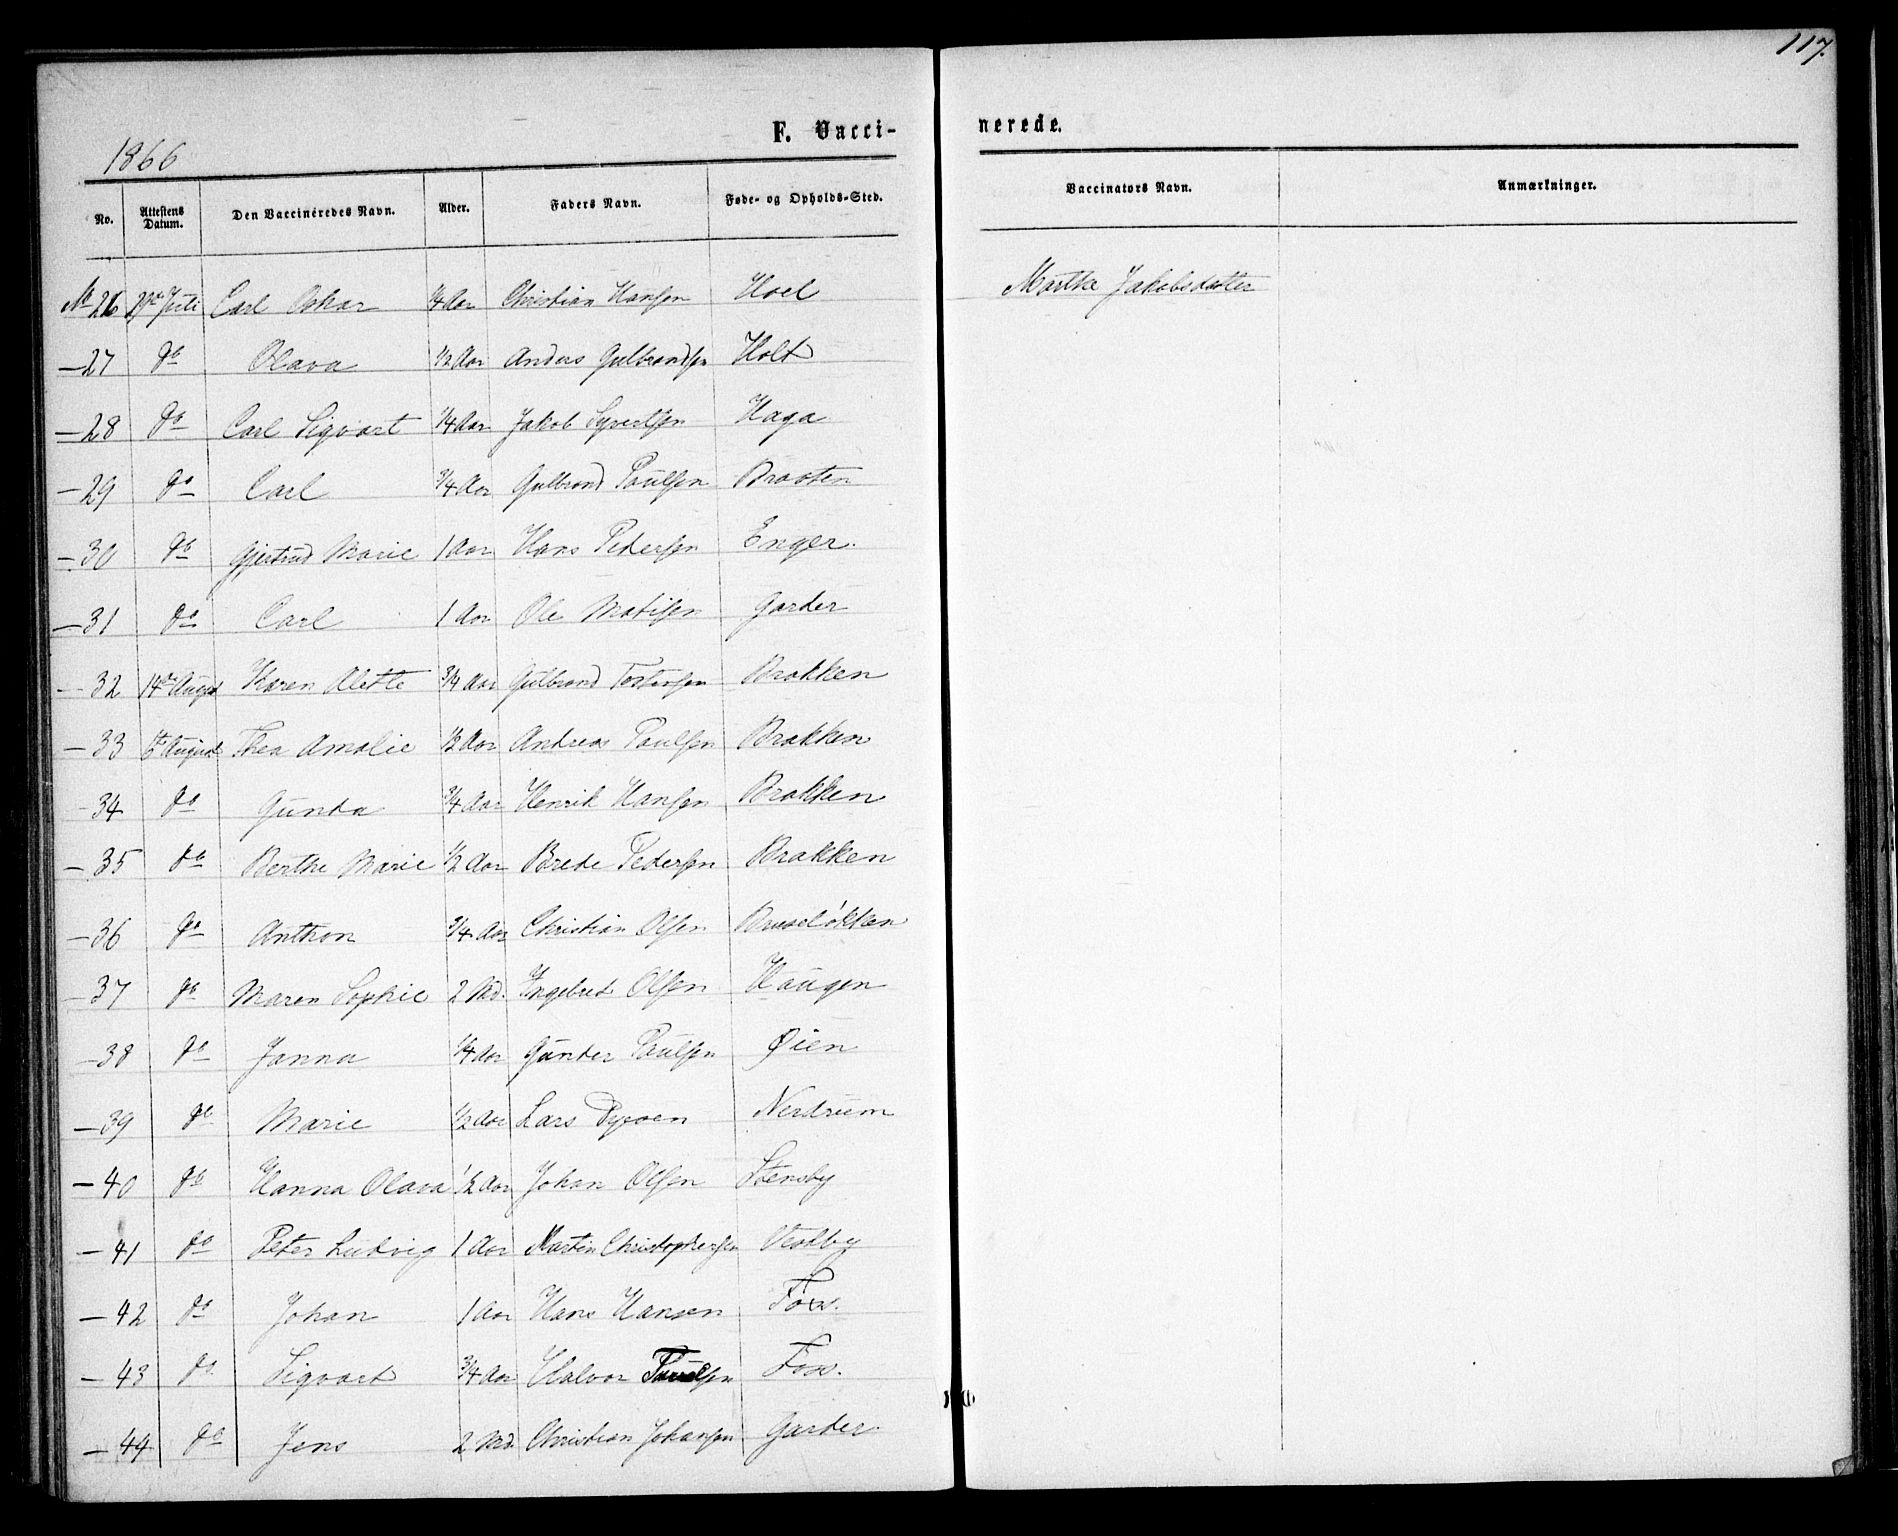 117.
F. Vaccinerede.
1866
No. Attestens Datum. Den Vaccineredes Navn. Alder. Faders Navn. Føde- og Opholds-Sted. Vaccinators Navn. Anmærkninger.
No 26 Juli Carl Oskar 1/4 Aar Christian Hansen Hoel Marthe Jakobsdatter
—27 do Olava 1/2 Aar Anders Gulbrandsen Holt
—28 do Carl Sigvart 1/4 Aar Jakob Syvertsen Haga
—29 do Carl 3/4 Aar Gulbrand Paulsen Braaten
—30 do Gjertrud Marie 1 Aar Hans Pedersen Enger.
—31 do Carl 1 Aar Ole Matisen Garder
—32 14de August Karen Alette 3/4 Aar Gulbrand Brakken
—33 August Thea Amalie 1/2 Aar Andreas Paulsen Brakken
—34 do Gunda 3/4 Aar Henrik Hansen Brakken
—35 do Berthe Marie 1/2 Aar Brede Pedersen Brakken
—36 do Anthon 3/4 Aar Christian Olsen
—37 do Maren Sophie 2 Md. Ingebret Olsen Haugen
—38 do Janna 1/4 Aar Gunder Paulsen Øien
—39 do Marie 1/2 Aar Lars Nerdrum
—40 do Hanna Olava 1/2 Aar Johan Olsen Stensby
—41 do Peter Ludvig 1 Aar Martin Christophersen Vestby
—42 do Johan 1 Aar Hans Hansen Foss.
—43 do Sigvart 3/4 Aar Halvor Foss.
—44 do Jens 2 Md. Christian Johansen Garder